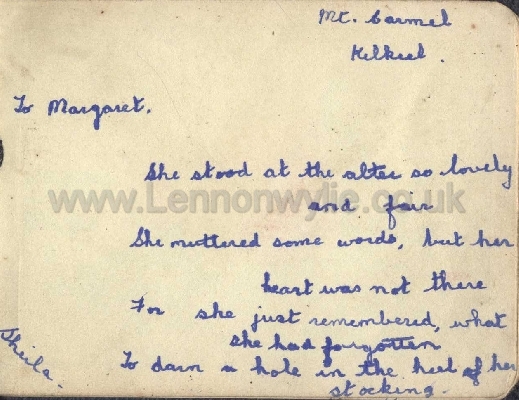 Mt. Carmel
Kilkeel.
To Margaret.
She stood at the alter so lovely
and fair
www.Lennonwylie.co.uk
She muttered some words, but her
heart was not there
For she just remembered, what
she had forgotten
To darn a hole in the heel of her
stocking.
Sheila.